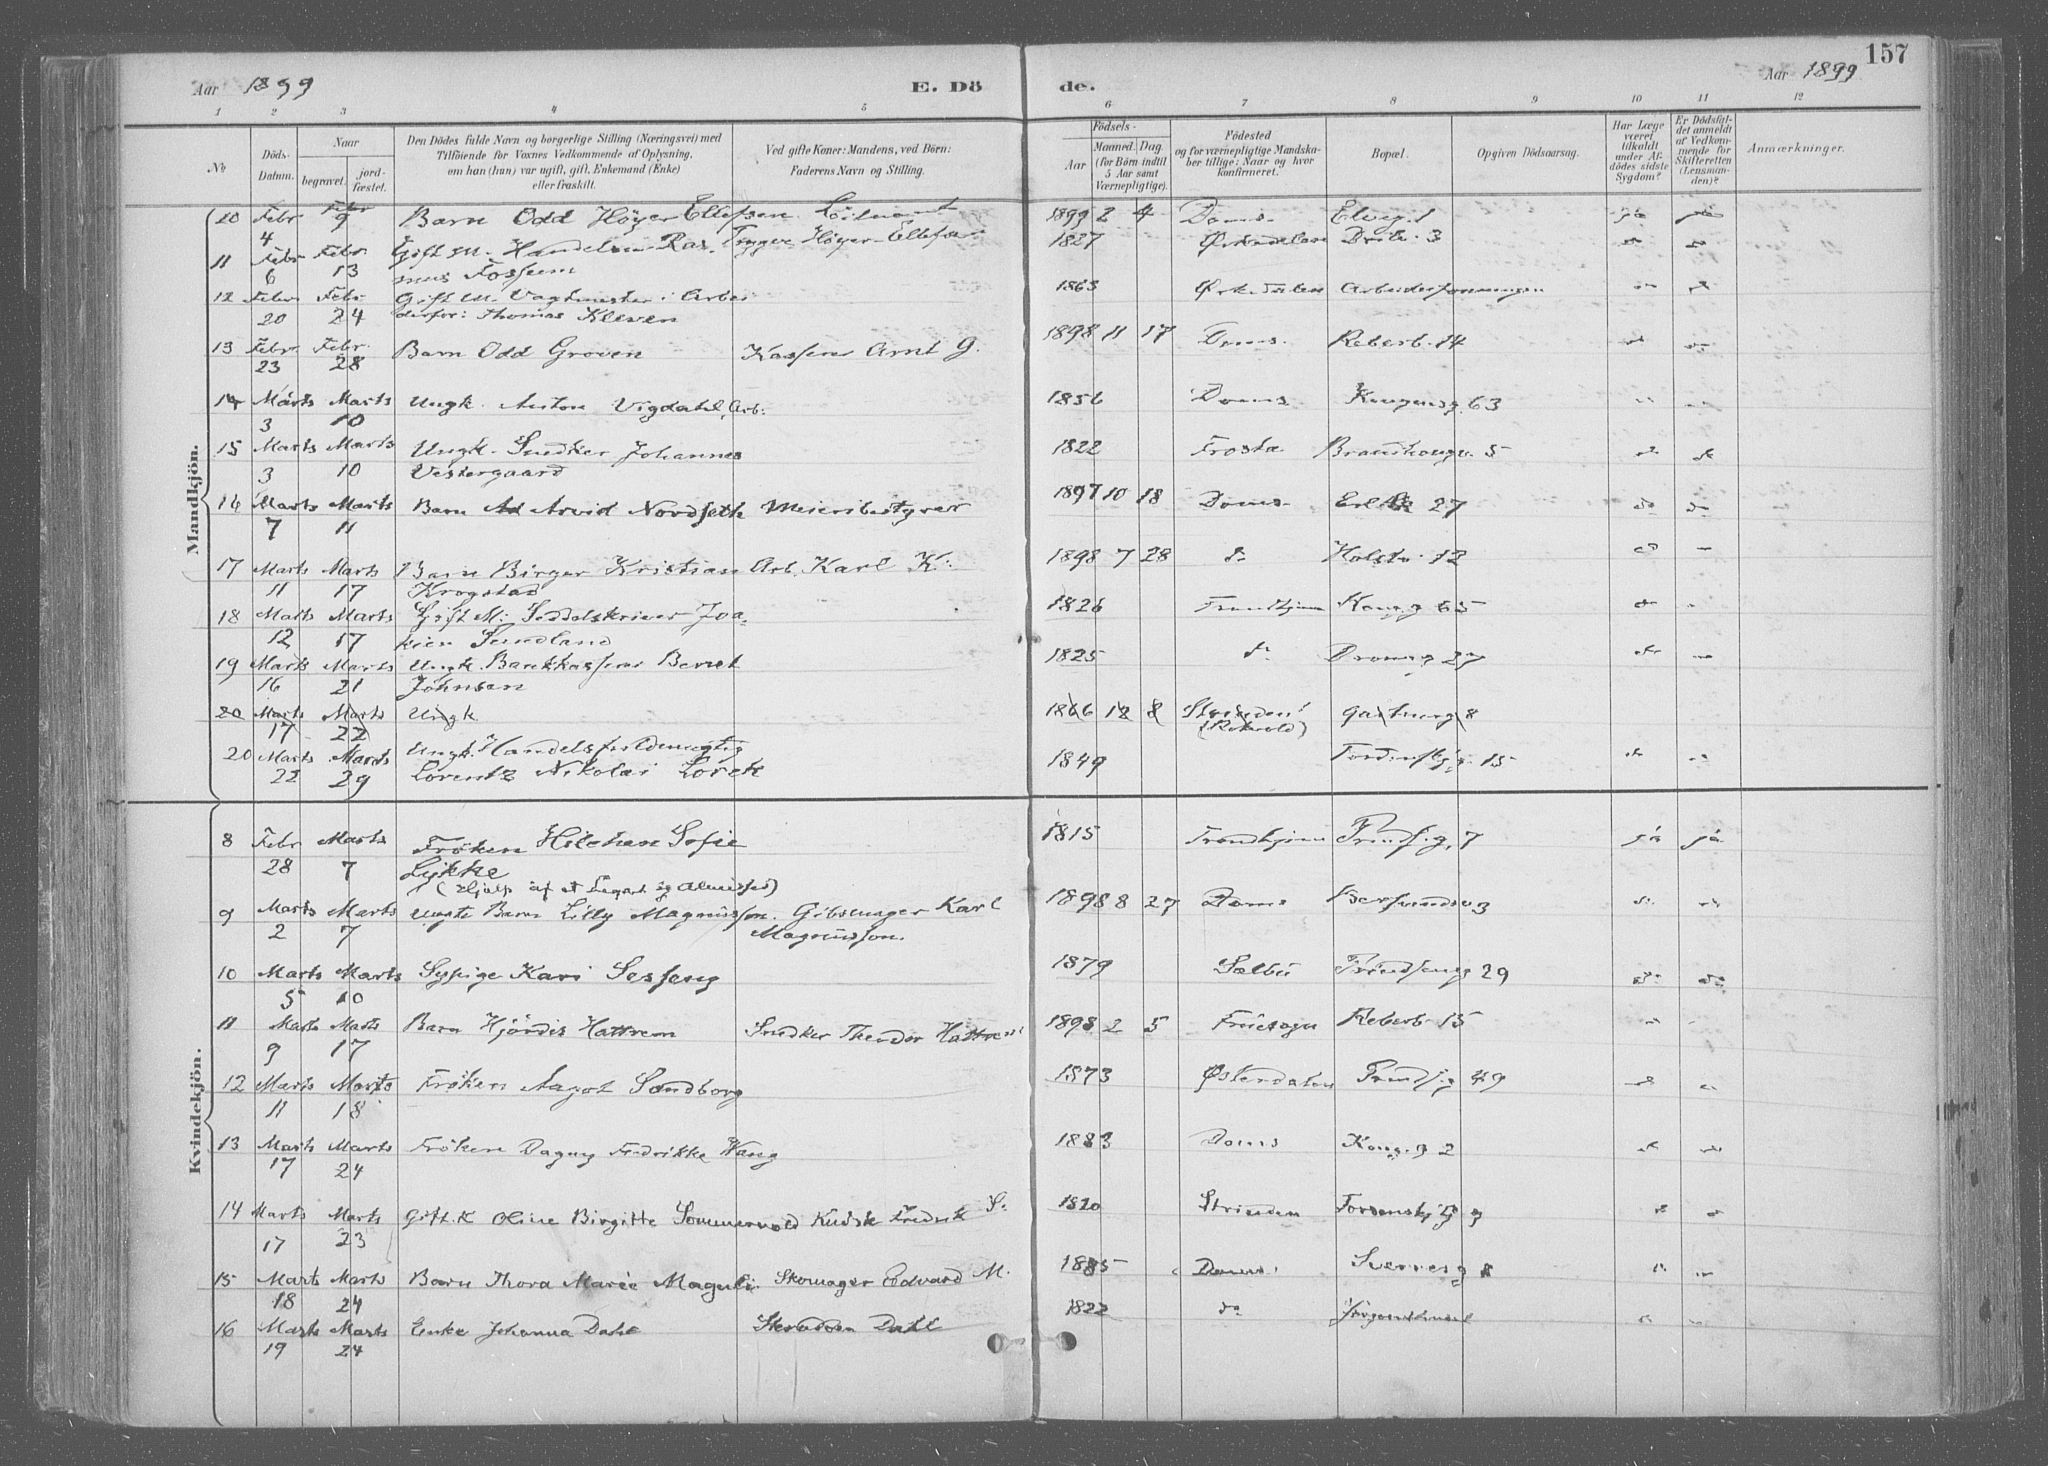 157
Aar 1899
E. Dö
de.
Aar 1899
1 2 3 4 5 6 7 8 9 10 11 12
No
Döds-Datum.
Naar
begravet.
jord-fæstet.
Den Dödes fulde Navn og borgerlige Stilling (Næringsvei) med
Tilföiende for Voxnes Vedkommende af Oplysning,
om han (hun) var ugift, gift, Enkemand (Enke)
eller fraskilt.
Ved gifte Koner: Mandens, ved Börn:
Faderens Navn og Stilling.
Födsels-
Aar
Maaned. Dag.
(for Börn indtil
5 Aar samt
Værnepligtige).
Födested
og for værnepligtige Mandska-
ber tillige: Naar og hvor
konfirmeret.
Bopæl.
Opgiven Dödsaarsag.
Har Læge
været
tilkaldt
under Af-
dödes sidste
Sygdom?
Er Dödsfal-
det anmeldt
af Vedkom-
mende for
Skifteretten
(Lensman-
den)?
Anmærkninger.
Mandkjön.
10 Febr 4 Febr 9 Barn Odd Höyer Ellefsen Löitnant Trygve Höyer-Ellefsen 1899 2 4 Doms. Elveg. 1 ja
11 Febr 6 Febr 13 Gift M. Handelsm Ras-
mus Fossem 1827 Ørkedalen 3
12 Febr 20 Febr 24 Gift M. Vagtmester i Arbei
derfor: Thomas Kleven 1863 Ørkedalen
13 Febr 23 Febr 28 Barn Odd Groven Kasserer Arnt G. 1898 11 17 Doms. Reberb. 14
14 Marts 3 Marts 10 Ungk. Anton Vigdahl, Arb: 1856 Doms Kongensg. 63
15 Marts 3 Marts 10 Ungk. Snedker Johannes
Vestergaard 1822 Frosta 5
16 Marts 7 Marts 11 Barn Arvid Nordseth Meieribestyrer 1897 10 18 Doms. 27
17 Marts 11 Marts 17 Barn Birger Kristian Arb. Karl K.
Krogstad 1898 7 28 do Holstv. 12
18 Marts 12 Marts 17 Gift M. Seddelskriver Joa-
kim Sundland 1826 Trondhjem Kong.g 65
19 Marts 16 Marts 21 Ungk. Bankkasserer Bernt
Johnsen 1825 do Dronn.g 27
20 Marts 17 Marts 22 Ungk 1866 12 8 Strinden 8
20 Marts 22 Marts 29 Ungk. Handelsfuldmægtig
Lorentz Nikolai Lorck 1849 15
Kvindekjön.
8 Febr 28 Marts 7 Frøken Sofie
Lykke 1815 Trondhjem 7 ja ja
9 Marts 2 Marts 7 uægte Barn Lilly Magnusson. Gibsmager Karl
Magnusson. 1898 8 27 Doms 3
10 Marts 5 Marts 10 Sypige Kari Sesseng 1879 Sælbu 29
11 Marts 9 Marts 17 Barn Hjördis Hattrem Snedker Theodor Hattrem 1898 2 5 Fruesogn Reberb 15
12 Marts 11 Marts 18 Frøken Aagot Sandborg 1873 Østerdalen 49
13 Marts 17 Marts 24 Frøken Dagny Fredrikke Wang 1883 Doms Kong.g 2
14 Marts 17 Marts 23 Gift.K Oline Birgitte Sommervold Kudsk Fredrik S. 1820 Strinden
15 Marts 18 Marts 24 Barn Thora Marie Maguli. Skomager Edvard M. 1885 Doms. Sverresg 8
16 Marts 19 Marts 24 Enke Johanna Dahl Dahl 1822 do